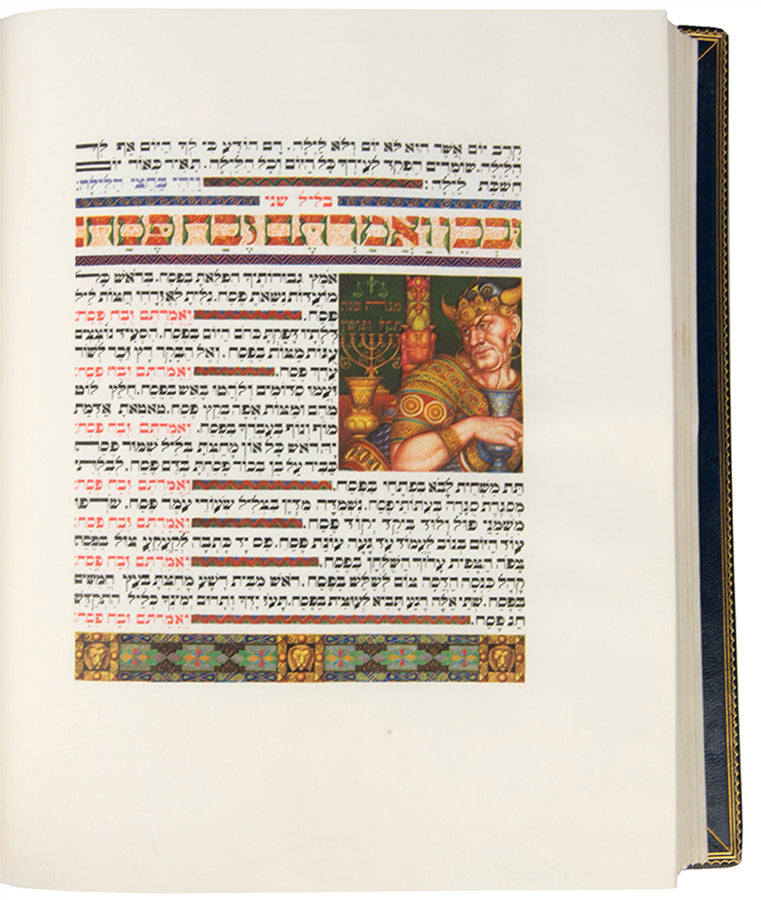 קרב יום אשר הוא לא יום ולא לילה. רם הודע כי לך היום אף לך
הלילה. שומרים הפקד לעירך כל היום וכל הלילה. תאיר כאור יום
חשכת לילה: ויהי בחצי הלילה:
בליל שני
ובכן ואמרתם זבח פסח:
אמץ גבורותיך הפלאת בפסח. בראש כל
מועדות נשאת פסח. גלית לאזרחי חצות ליל
פסח. ואמרתם זבח פסח:
דלתיו דפקת כחם היום בפסח. הסעיד נוצצים
עגות מצות בפסח. ואל הבקר רץ זכר לשור
ערך פסח. ואמרתם זבח פסח:
זועמו סדומים ולהטו באש בפסח. חלץ לוט
מהם ומצות אפה בקץ פסח. טאטאת אדמת
מוף ונוף בעברך בפסח. ואמרתם זבח פסח:
יה ראש כל און מחצת בליל שמור פסח.
כביר על בן בכור פסחת בדם פסח. לבלתי
תת משחית לבא בפתחי בפסח. ואמרתם זבח פסח:
מסגרת סגרה בעתותי פסח. נשמדה מדין בצליל שעורי עמר פסח. שורפו
משמני פול ולוד ביקד יקוד פסח. ואמרתם זבח פסח:
עוד היום בנוב לעמוד עד געה עונת פסח. פס יד כתבה לקעקע צול בפסח
צפה הצפית ערוך השלחן בפסח. ואמרתם זבח פסח:
קהל כנסה הדסה צום לשלש בפסח. ראש מבית רשע מחצת בעץ חמשים
בפסח. שתי אלה רגע תביא לעוצית בפסח. תעז ידך ותרום ימינך כליל התקדש
חג פסח. ואמרתם זבח פסח:
מנה מנה
תקל ופרסין